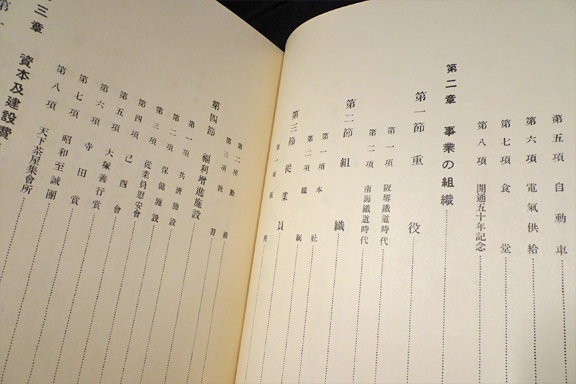 第五項 自動車
第六項 電氣供給
第七項 食堂
第八項 開通五十年記念
第二章 事業の組織
第一節 重役
第一項 阪堺鐵道時代
第二項 南海鐵道時代
第二節 組織
第一項 本社
第二項 職制
第三節 從業員
第一項
第二項 勤務
第三項 教習
第四節 福利增進施設
第一項 共濟施設
第二項 保健施設
第三項 從業員慰安會
第四項 己酉會
第五項 大塚善行賞
第六項 寺田賞
第七項 昭和至誠團
第八項 天下茶屋集會所
第三章 資本及建設費
第一